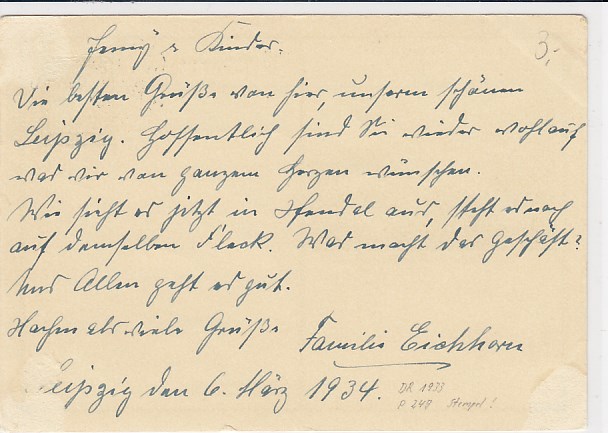 Jenny & Kinder.
3,-
Die besten Grüße von hier, unserm schönen
Leipzig. Hoffentlich sind Sie wieder wohlauf
was wir von ganzem Herzen wünschen.
Wie sieht es jetzt in Stendal aus, steht es noch
auf demselben Fleck. Was macht das Geschäft?
Uns Allen geht es gut.
Nochmals viele Grüße
Familie Eichhorn
Leipzig den 6. März 1934.
DR 1933
P 247 Stempel!